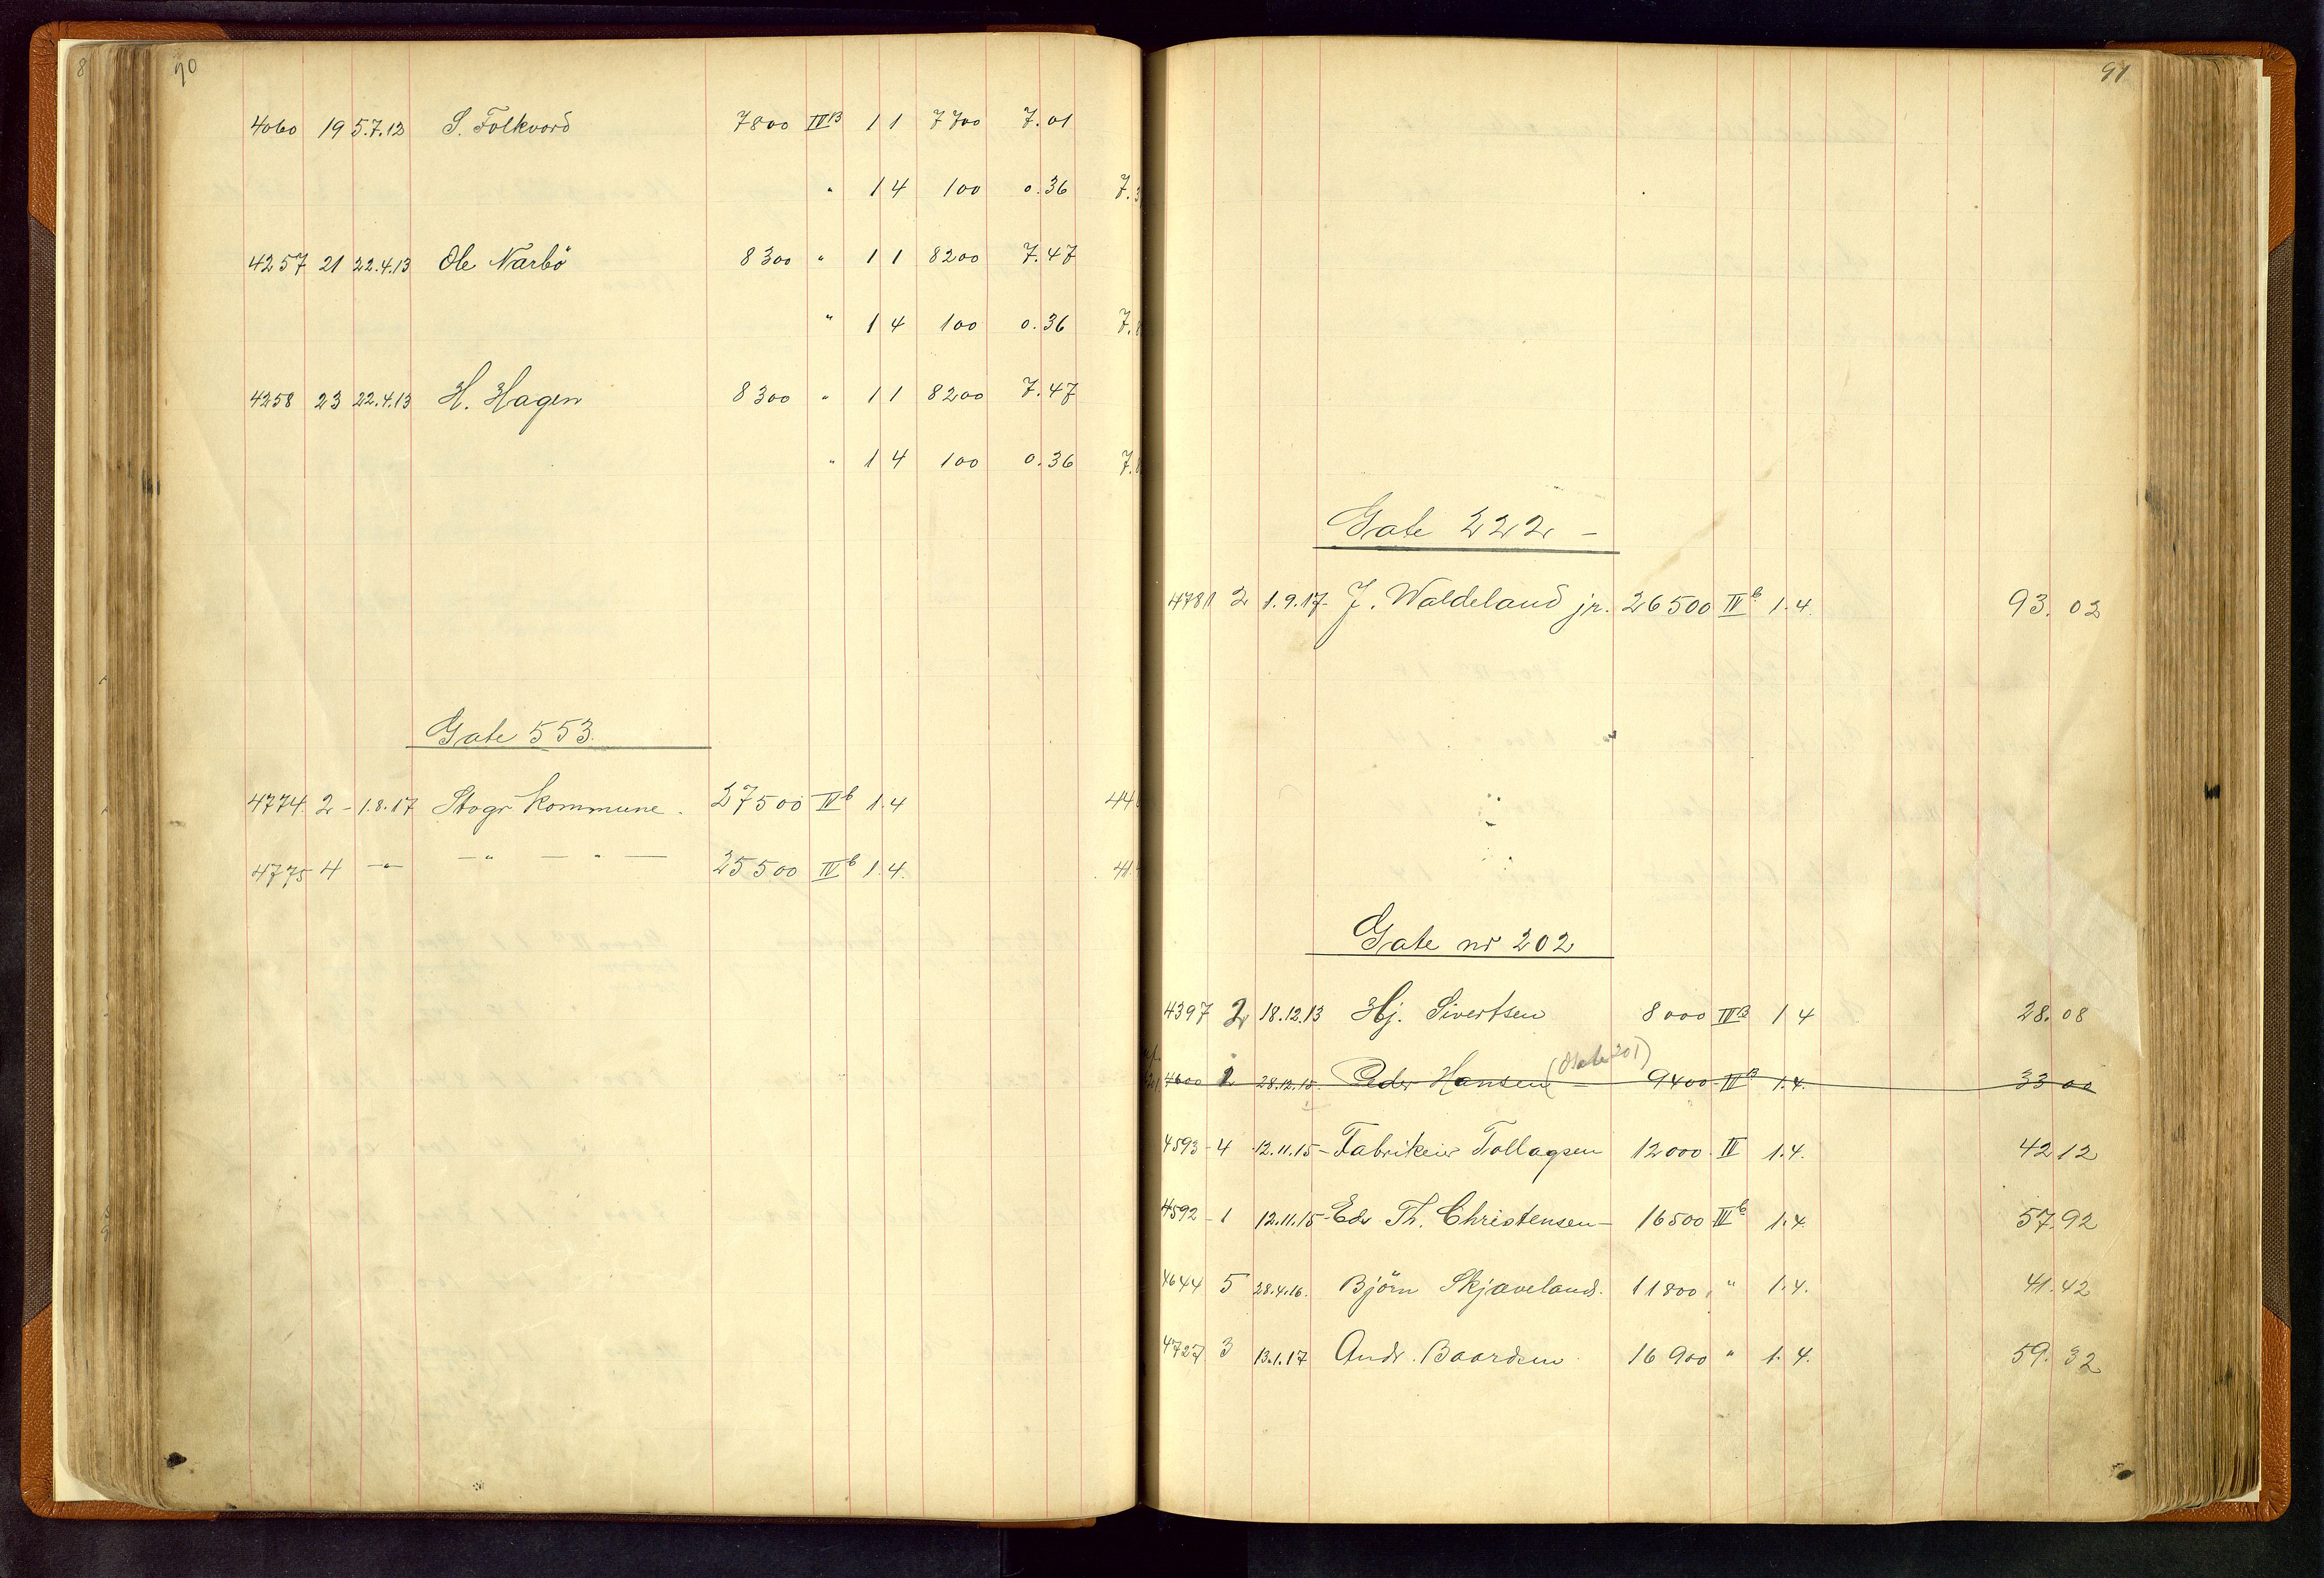 8 90
4060 19 5.7.12 S. Folkvord 7800 IVB 1 1 7700 7.01
" 1 4 100 0.36 7.3
4257 21 22.4.13 Ole Narbö 8300 " 1 1 8200 7.47
" 1 4 100 0.36 7.8
4258 23 22.4.13 H. Hagen 8300 " 1 1 8200 7.47
" 1 4 100 0.36 7.8
Gate 553.
4774. 2 - 1.8.17 Stvgr kommune. 27500 IVb 1.4 44
4775 4 —"— —"— " — 25500 IVb 1.4. 41
91
Gate 222 -
4781 2 1.9.17- J. Waldeland jr. 26500 IVb 1.4. 93.02
Gate nr 202
4397 2 18.12.13 Hj. Sivertsen 8000 IVB 1 4 28.08
(Gate 201)
4600 1 28.12.15. Peder Hansen - 9400 IVB 1.4. 33 00
4593 - 4 12.11.15 - Fabrikeier Tollagsen 12000 IV 1.4. 42 12
4592 - 1 12.11.15 - Edv Th. Christensen - 16500 IVb 1.4 57.92
4644 5 28.4.16. Björn Skjaveland. 11800 " 1.4. 41.42
4727 3 13.1.17 Andr. Baardsen 16900 " 1.4. 59.32